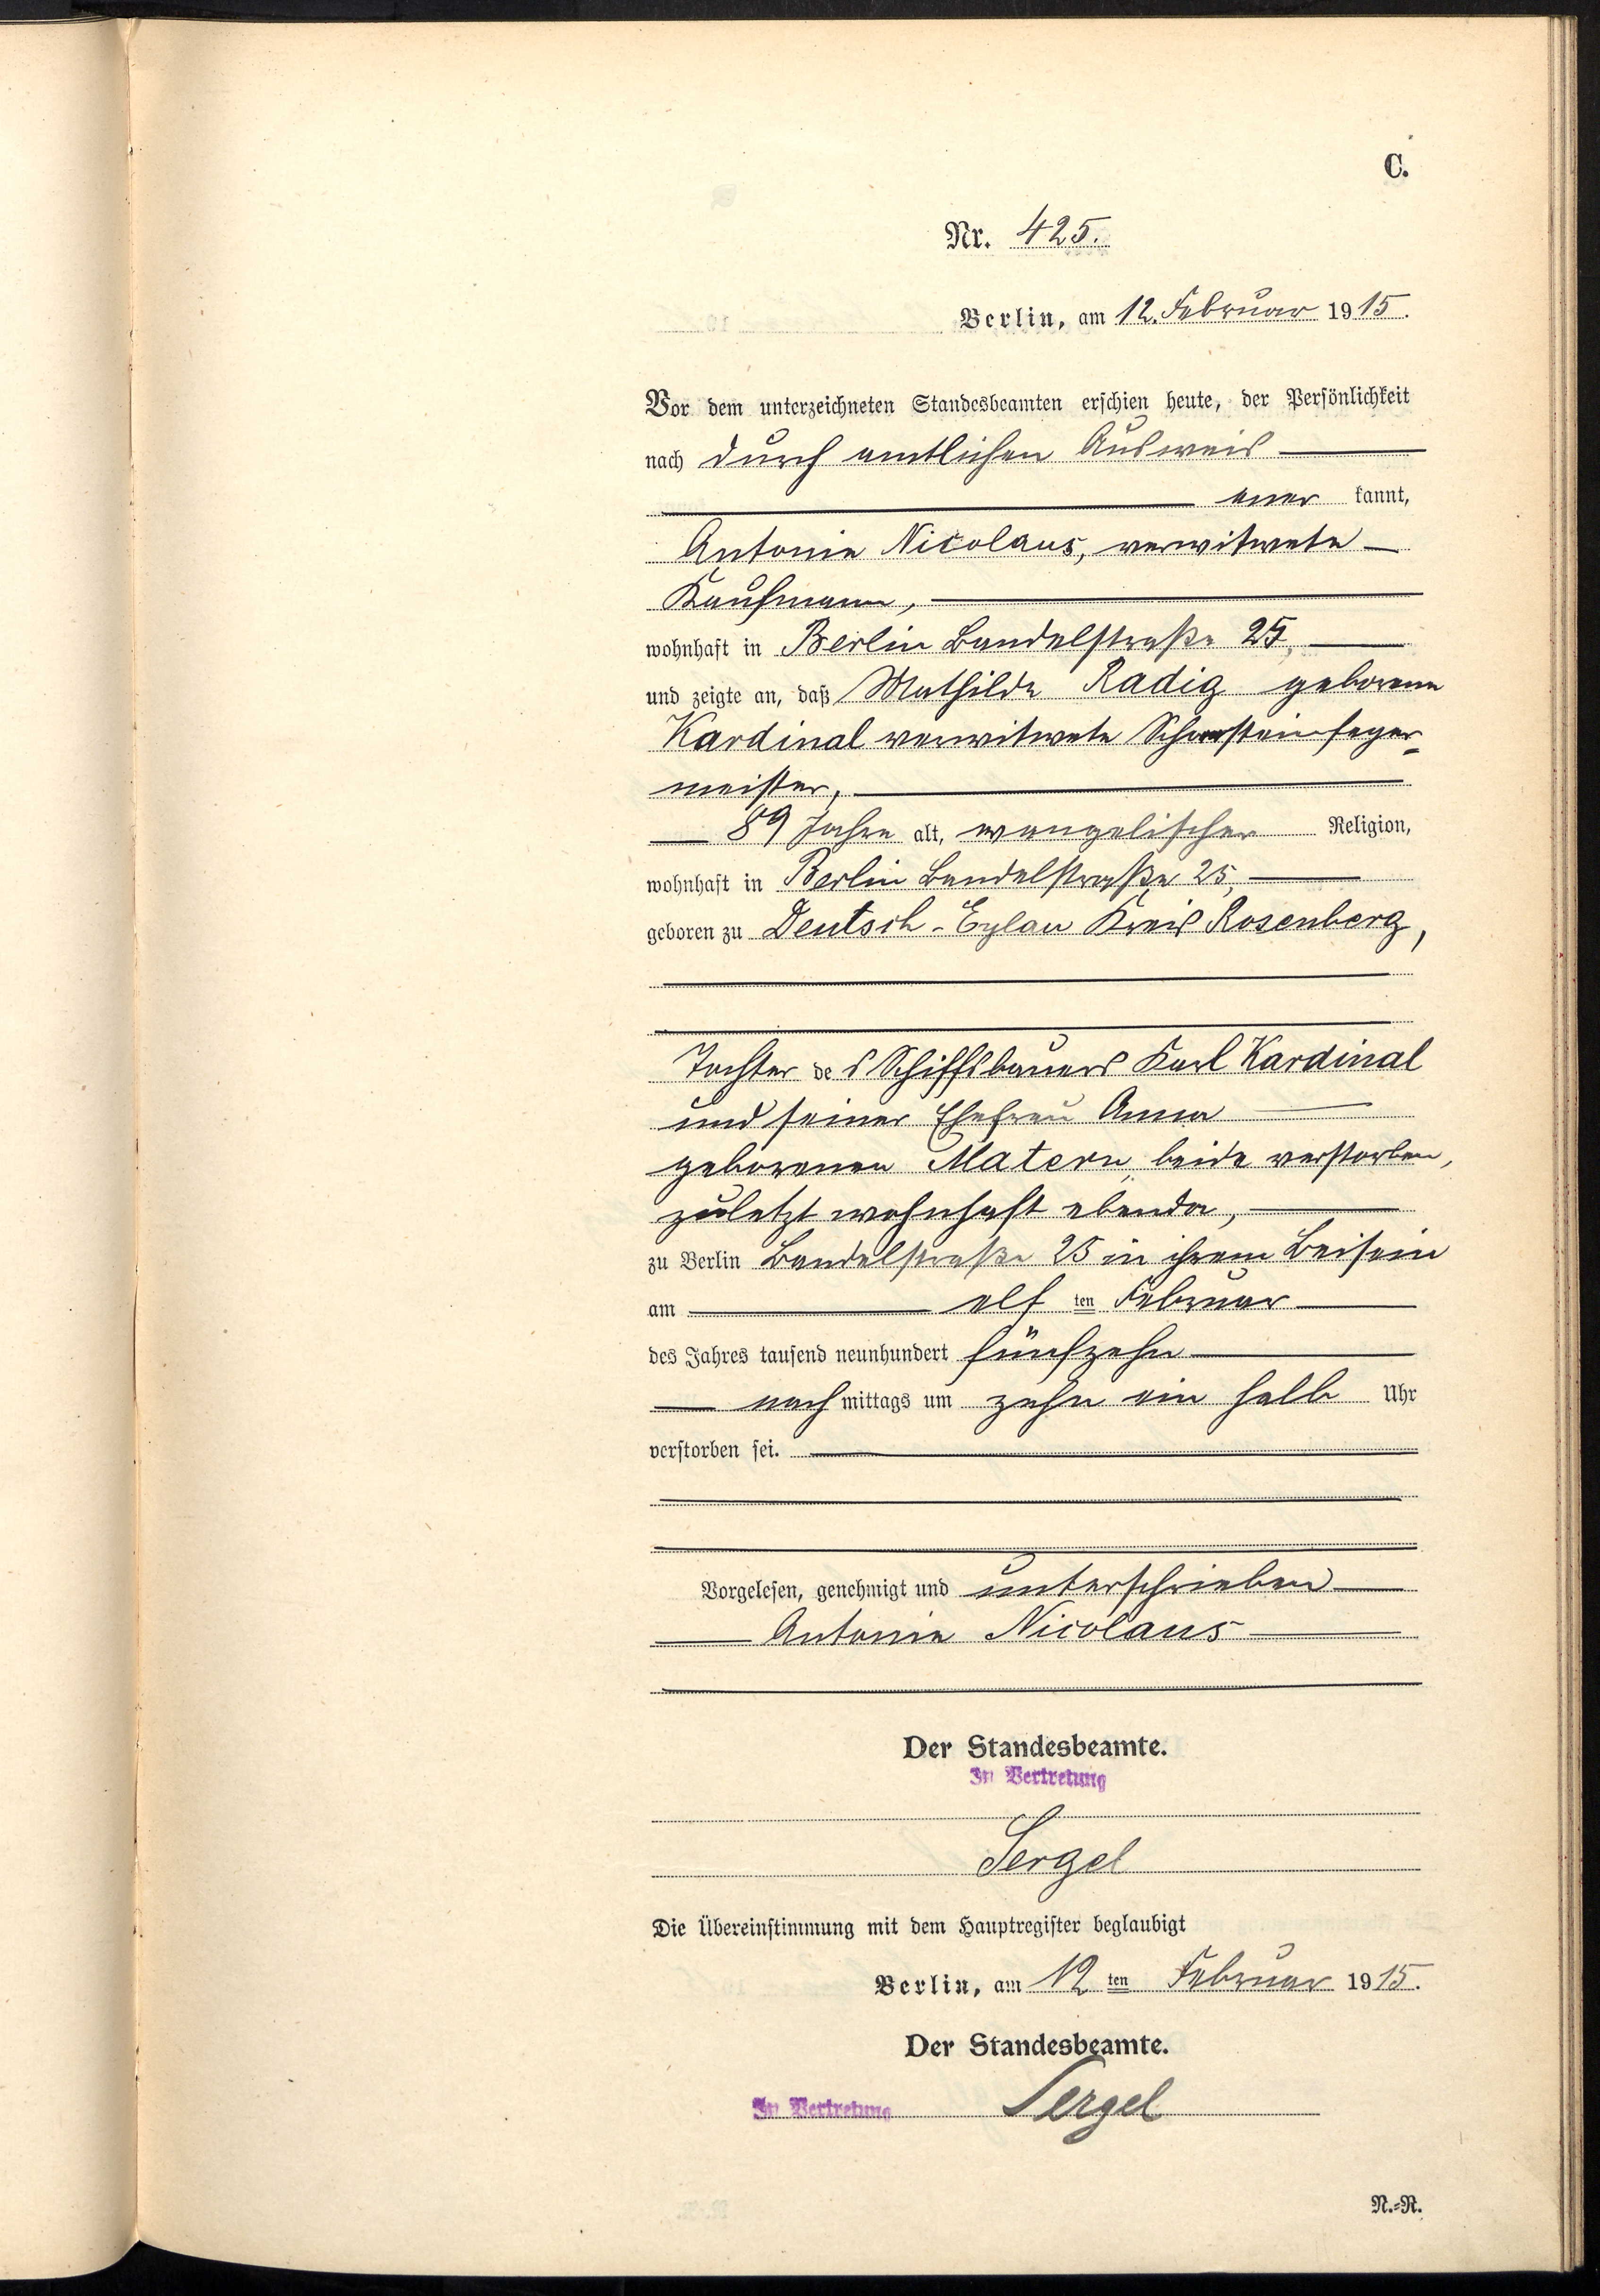 C.
Nr. 425.
Berlin, am 12. Februar 1915.
Vor dem unterzeichneten Standesbeamten erschien heute, der Persönlichkeit
nach durch amtlichen Ausweis
aner kannt,
Antonie Nicolaus, verwitwete
Kaufmann,
wohnhaft in Berlin Bandelstraße 25,
und zeigte an, daß Mathilde Radig geborene
Kardinal verwitwete Schornsteinfeger-
meister,
89 Jahre alt, evangelischer Religion,
wohnhaft in Berlin Bandelstraße 25,
geboren zu Deutsch-Eylau Kreis Rosenberg,
Tochter des Schiffsbauers Karl Kardinal
und seiner Ehefrau Anna
geborenen Matern, beide verstorben,
zuletzt wohnhaft ebenda,
zu Berlin Bandelstraße 25 in ihrem Beisein
am elf ten Februar
des Jahres tausend neunhundert fünfzehn
nach mittags um zehn ein halb Uhr
verstorben sei.
Vorgelesen, genehmigt und unterschrieben
Antonie Nicolaus
Der Standesbeamte.
In Vertretung
Sergel
Die Übereinstimmung mit dem Hauptregister beglaubigt
Berlin, am 12 ten Februar 1915.
Der Standesbeamte.
In Vertretung Sergel
N.=R.